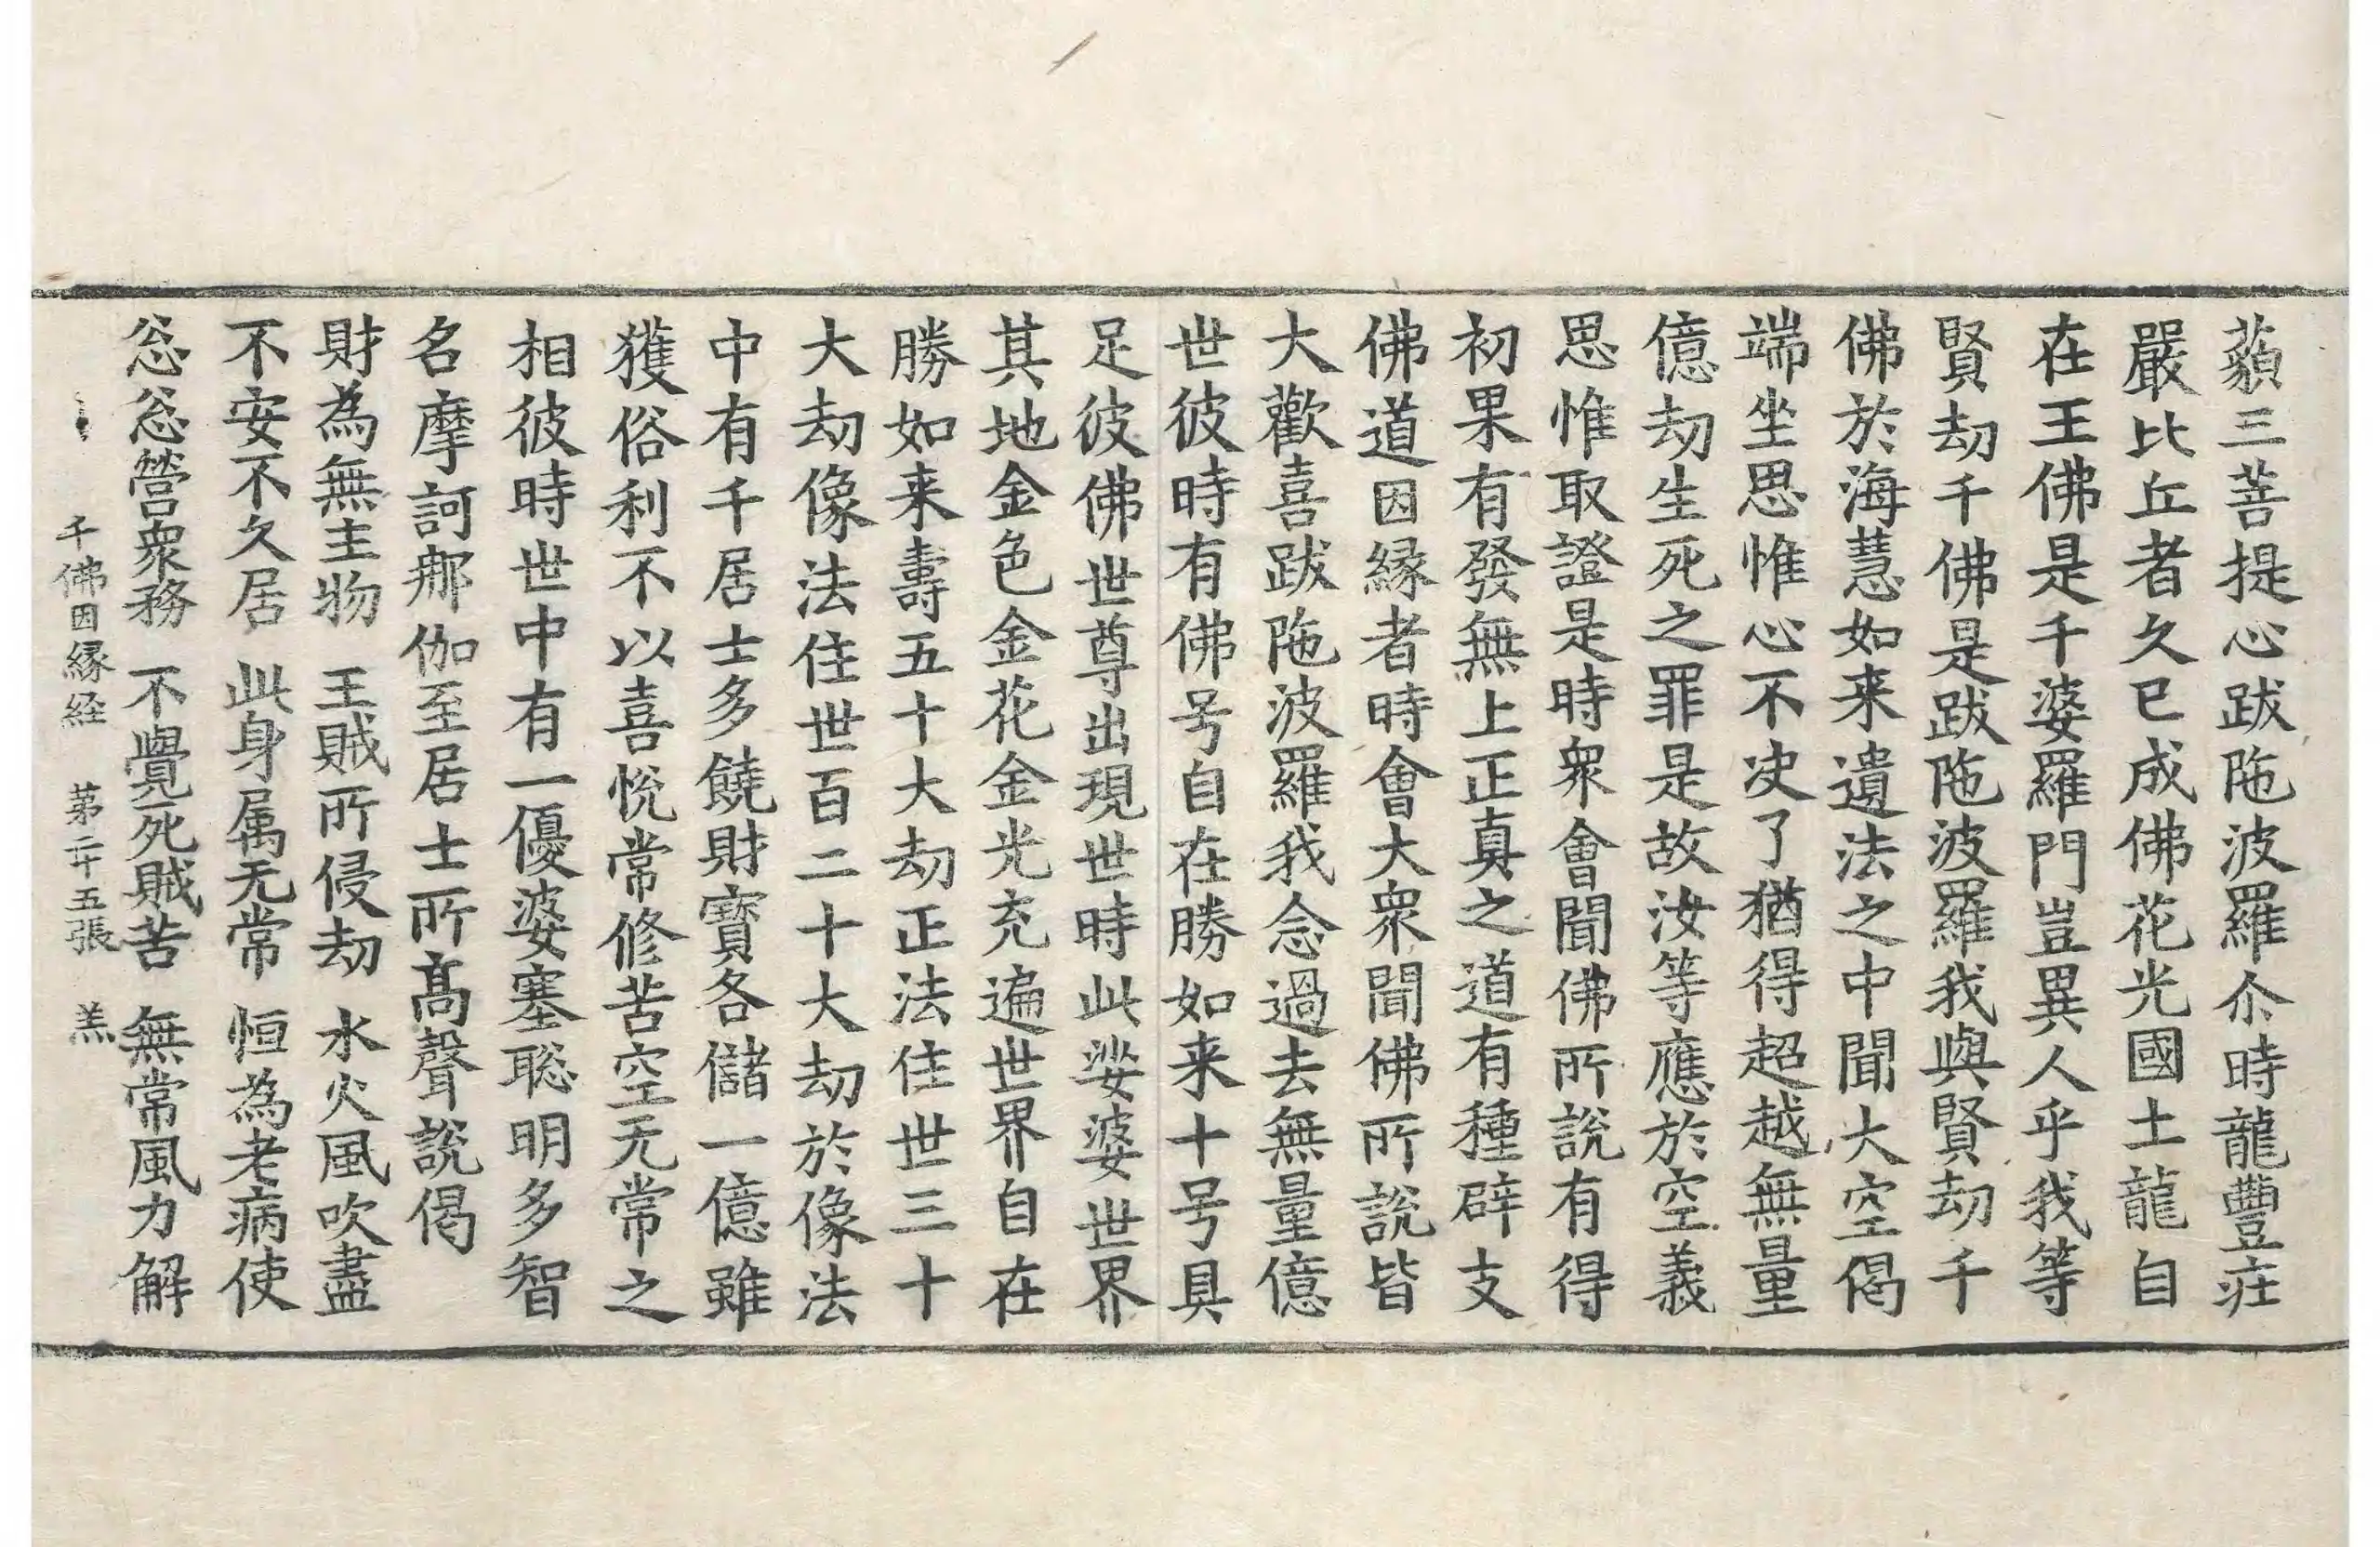 藐三菩提心跋陁波羅尒時龍豐莊
嚴比丘者久已成佛花光國土龍自
在王佛是千婆羅門豈異人乎我等
賢劫千佛是跋陁波羅我與賢劫千
佛於海慧如来遺法之中聞大空偈
端坐思惟心不决了猶得超越無量
億劫生死之罪是故汝等應於空義
思惟取證是時衆會聞佛所說有得
初果有發無上正真之道有種辟支
佛道因縁者時會大衆聞佛所說皆
大歡喜跋陁波羅我念過去無量億
世彼時有佛号自在勝如来十号具
足彼佛世尊出現世時此娑婆世界
其地金色金花金光充遍世界自在
勝如来壽五十大劫正法住世三十
大劫像法住世百二十大劫於像法
中有千居士多饒財寶各儲一億雖
獲俗利不以喜悅常修苦空无常之
相彼時世中有一優婆塞聡明多智
名摩訶那伽至居士所髙聲說偈
財為無主物　王賊所侵劫　水火風吹盡
不安不久居　此身属无常　恒為老病使
忩忩營衆務　不覺死賊苦　無常風力解
千佛因縁経　第二十五張　羔